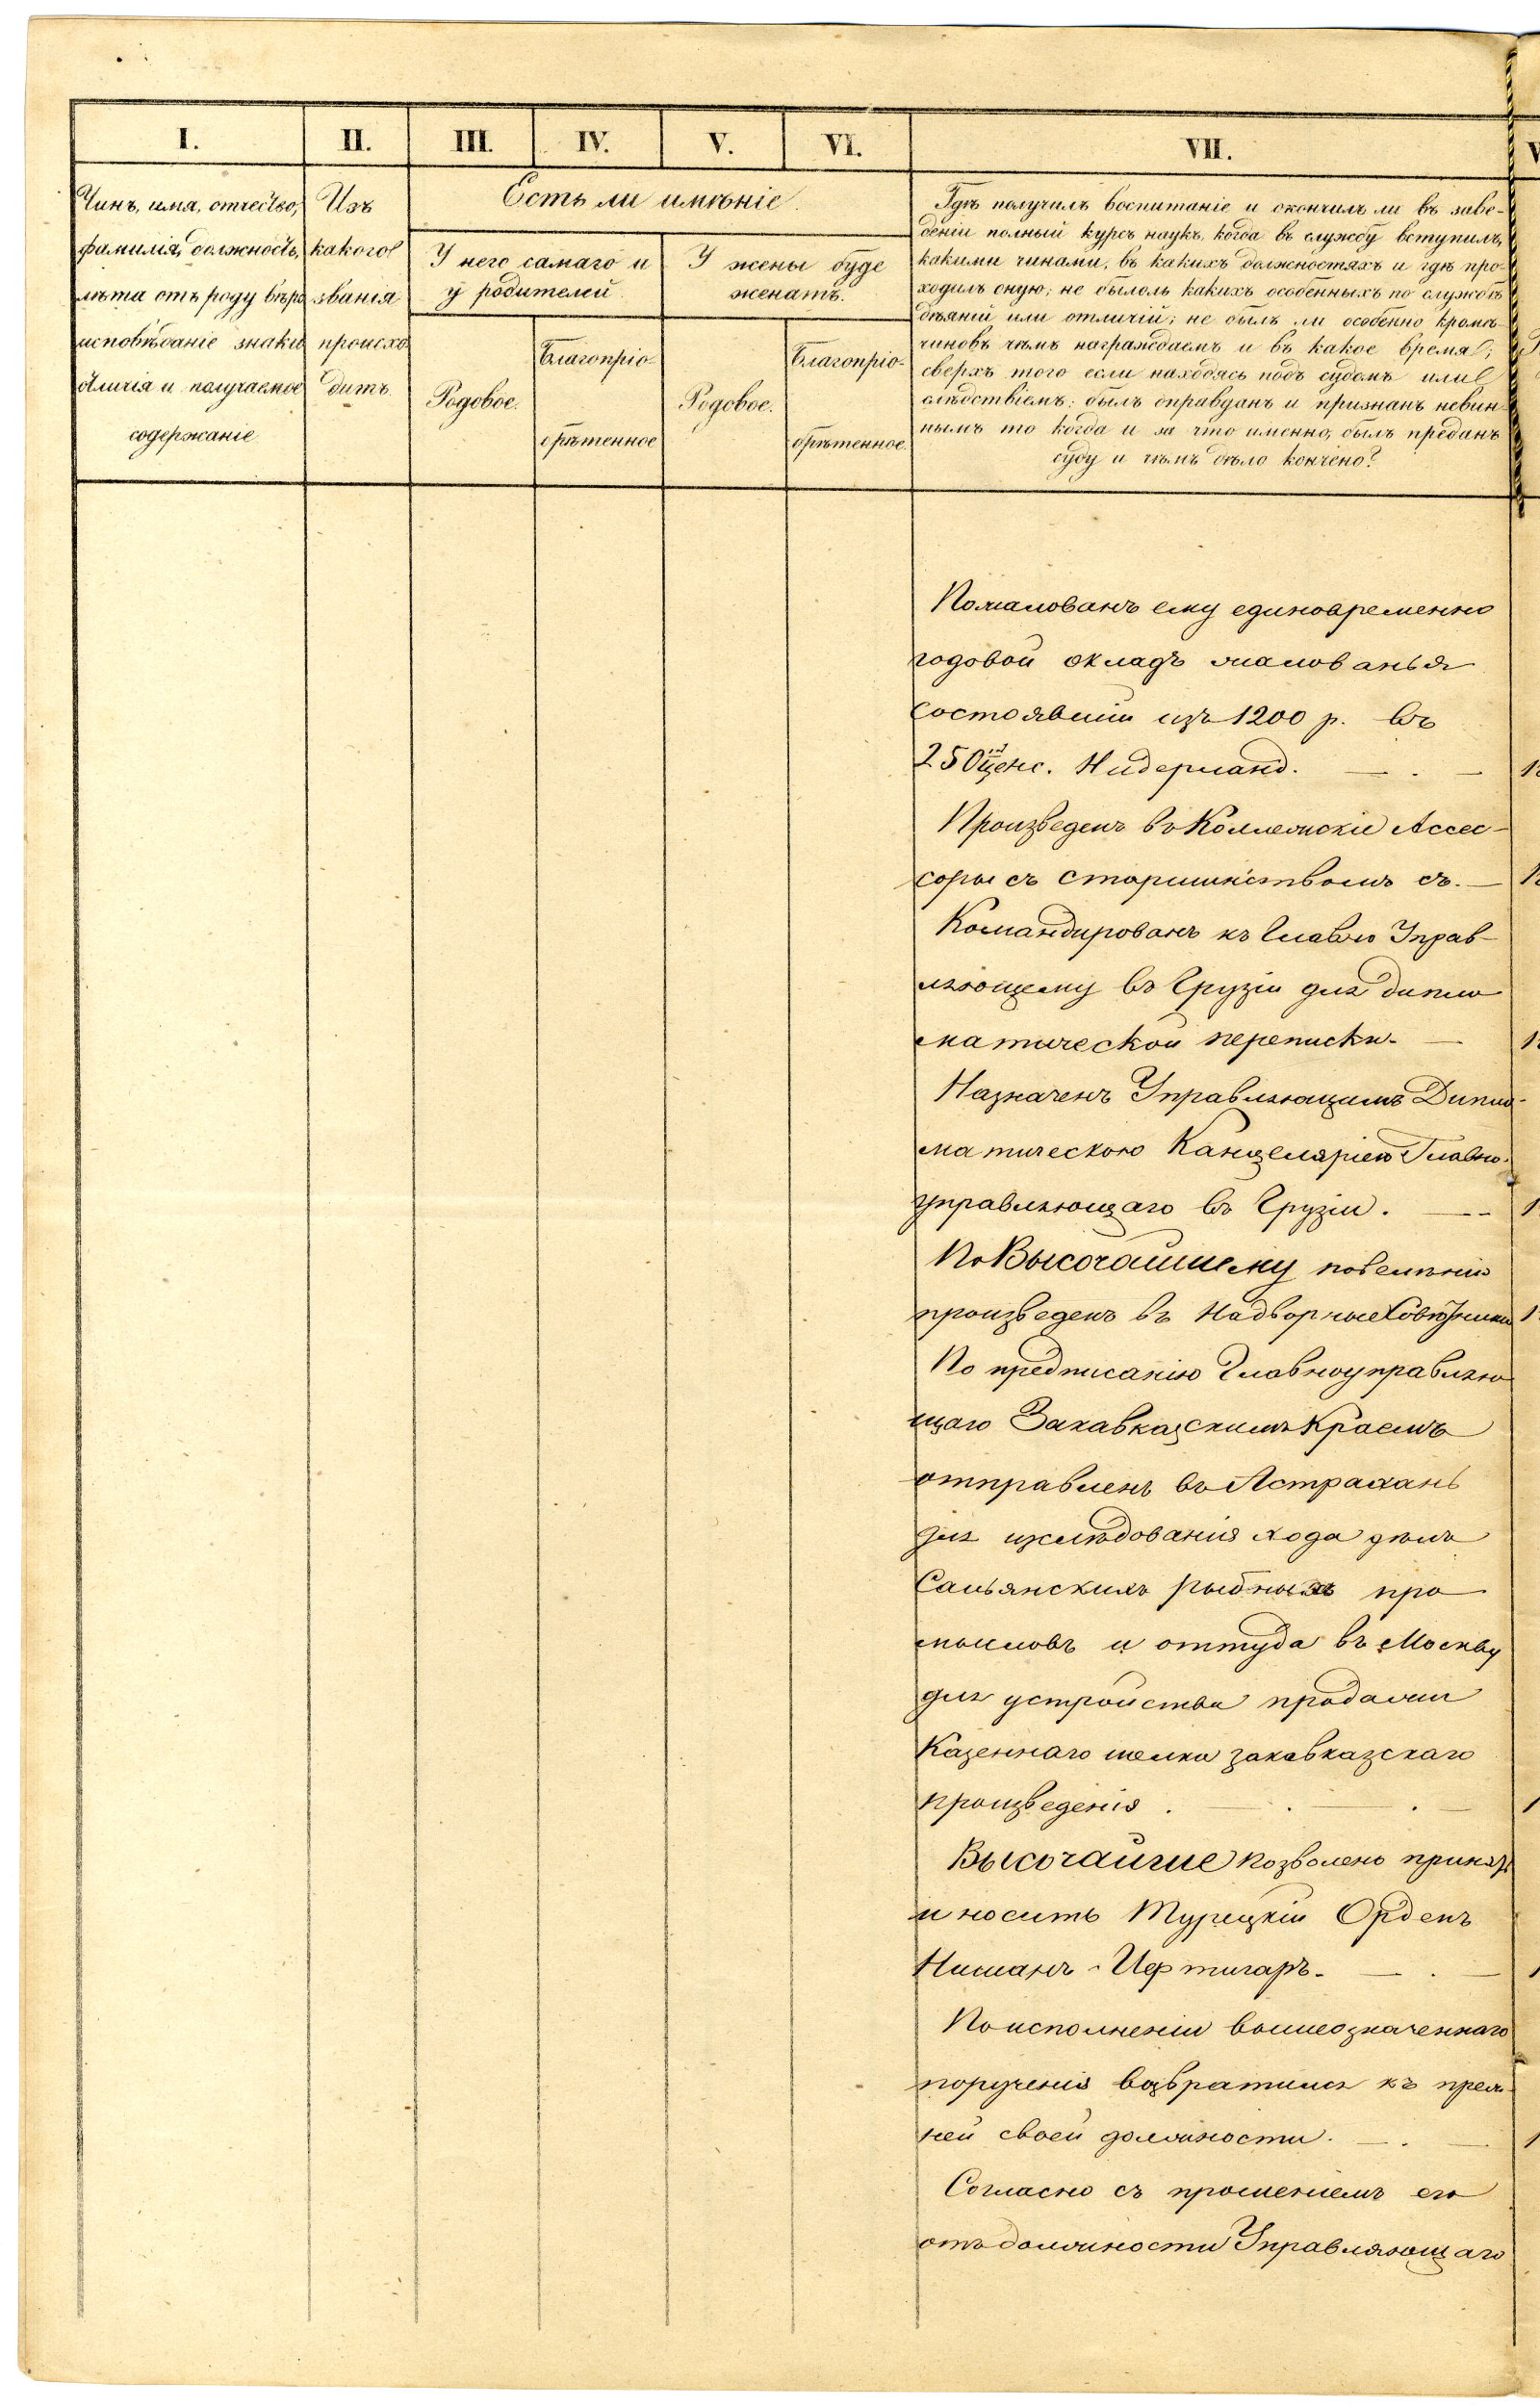 I.
II.
III.
IV.
V.
VI.
VII.
Чинъ, имя, отчество,
фамилія, должность,
лѣта отъ роду вѣро
исповѣданіе знаки
отличія и получаемое
содержаніе
Изъ
какого
званія
происхо
дитъ.
Есть ли имѣніе
У него самаго и
у родителей.
У жены буде
женатъ.
Родовое.
Благопріо-
брѣтенное
Родовое.
Благопріо-
брѣтенное.
Гдѣ получилъ воспитаніе и окончилъ ли въ заве-
деніи полный курсъ наукъ, когда въ службу вступилъ,
какими чинами, въ какихъ должностяхъ и гдѣ про-
ходилъ оную; не былоль какихъ особенныхъ по службѣ
дѣяній или отличій; не былъ ли особенно кромѣ
чиновъ чѣмъ награждаемъ и въ какое время;
сверхъ того если находясь подъ судомъ или
слѣдствіемъ: былъ оправданъ и признанъ невин-
нымъ то когда и за что именно, былъ преданъ
суду и чѣмъ дѣло кончено?
Пожалованъ ему единовременно
годовой окладъ жалованья
состоявшій изъ 1200 р. въ
250 ценс. Нидерланд.
Произведенъ въ Коллежскіе Ассес-
соры съ старшинствомъ съ.
Командированъ къ Главно Управ-
ляющему въ Грузіи для дипло
матической переписки.
Назначенъ Управляющимъ Дипло-
матическою Канцеляріею Главно-
управляющаго въ Грузіи.
По Высочайшему повелѣнію
произведенъ въ Надворные Совѣтники
По предписанію Главноуправляю
щаго Закавказскимъ Краемъ
отправленъ въ Астрахань
для изслѣдованія хода дѣлъ
Сальянскихъ рыбныхъ про
мысловъ и оттуда въ Москву
для устройства продажи
Казеннаго шелка закавказскаго
произведенія.
Высочайше позволено принять
и носить Турецкій Орденъ
Нишанъ-Ифтигаръ.
По исполненіи вышеозначеннаго
порученія возвратился къ преж-
ней своей должности.
Согласно съ прошеніемъ его
отъ должности Управляющаго